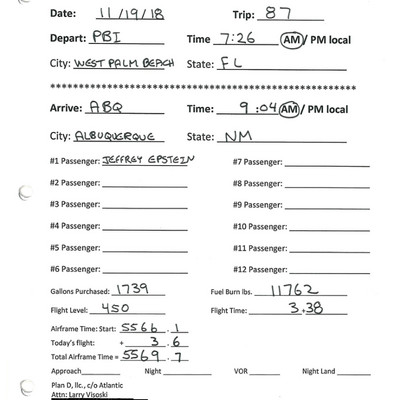 Date: 11/19/18 Trip: 87
Depart: PBI Time 7:26 AM / PM local
City: WEST PALM BEACH State: FL
**************************************************
Arrive: ABQ Time: 9:04 AM / PM local
City: ALBUQUERQUE State: NM
#1 Passenger: JEFFREY EPSTEIN #7 Passenger:
#2 Passenger: #8 Passenger:
#3 Passenger: #9 Passenger:
#4 Passenger: #10 Passenger:
#5 Passenger: #11 Passenger:
#6 Passenger: #12 Passenger:
Gallons Purchased: 1739 Fuel Burn lbs. 11762
Flight Level: 450 Flight Time: 3+38
Airframe Time: Start: 5566.1
Today's flight: + 3.6
Total Airframe Time = 5569.7
Approach Night VOR Night Land
Plan D, llc., c/o Atlantic
Attn: Larry Visoski